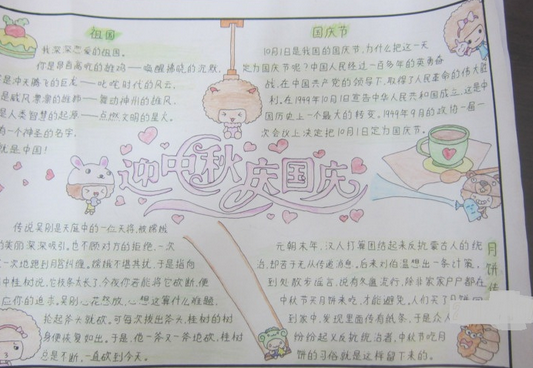 祖国
我深深恋爱的祖国。
你是昂首高吭的雄鸡——唤醒拂晓的沉默,
是冲天腾飞的巨龙——叱咤时代的风云,
是威风凛凛的雄狮——舞动神州的雄风,
是人类智慧的起源——点燃文明的星火。
有一个神圣的名字,
就是中国!
国庆节
10月1日是我国的国庆节。为什么把这一天
定为国庆节呢?中国人民经过一百多年的英勇奋
战,在中国共产党的领导下,取得了人民革命的伟大胜
利。在1949年10月1日宣告中华人民共和国成立,这是中
国历史上一个最大的转变。1949年9月的政协一届一
次会议上决定把10月1日定为国庆节。
迎中秋 庆国庆
传说吴刚是天庭中的一位天将,被嫦娥
的美丽深深吸引。也不顾对方的拒绝,一次
又一次地跑到月宫纠缠。嫦娥不堪其扰,于是指向
中桂树说:它枝条太长了,今夜你若能将它砍断,便
应你的追求。吴刚心花怒放,心想这算什么难题,
抡起斧头就砍。可每次拔出斧头,桂树的树
身便恢复如出。于是,他一斧又一斧地砍,桂树
总是不断,一直砍到今天。
月饼传
元朝末年,汉人打算团结起来反抗蒙古人的统
治,却苦于无从传递消息。后来刘伯温想出一条计策,
到处散布谣言,说有冬瘟流行,除非家家户户都在
中秋节买月饼来吃,才能避免。人们买了月饼回
到家中,发现里面传着纸条,于是众人
纷纷起义反抗统治者,中秋节吃月
饼的习俗就是这样留下来的。